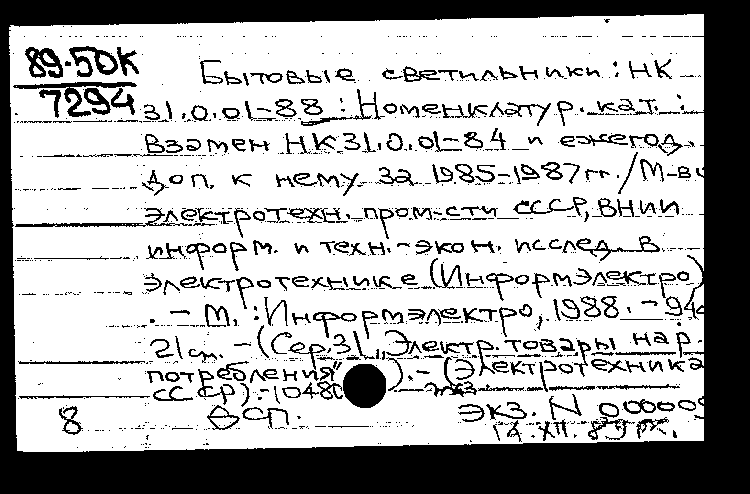 89-50К
7294
Бытовые светильники : НК
31.0.01-88 : Номенклатур. кат. :
Взамен НК 31.0.01-84 и ежегод.
доп. к нему за 1985-1987 гг. / М-во
электротехн. пром-сти СССР, ВНИИ
информ. и техн.-экон. исслед. в
электротехнике (Информэлектро)
. - М. : Информэлектро, 1988. - 94
21 см. - (Сер. 31 „Электр. товары нар.
потребления" ). - (Электротехника
СССР). - 10480 экз
8 Всп. ЭКЗ. N 000009
14.XII.89 РК.